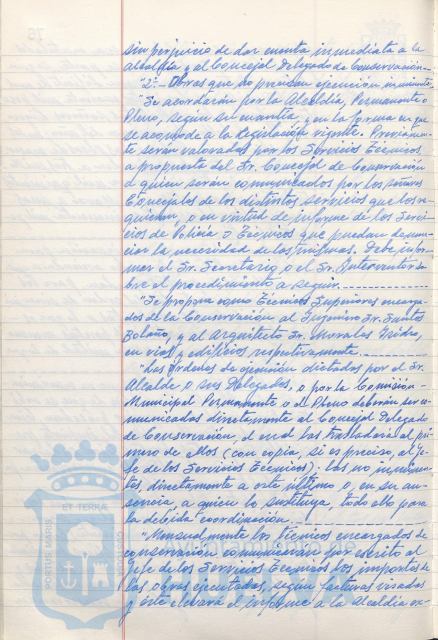 sin perjuicio de dar cuenta inmediata a la
Alcaldía y al Concejal Delegado de Conservación.-
"2º.- Obras que no precisen ejecución inminente.
"Se acordarán por la Alcaldía, Permanente o
Pleno, según su cuantía, y en la forma en que
se acomode a la legislación vigente. Previamen-
te serán valoradas por los Servicios Técnicos
a propuesta del Sr. Concejal de Conservación
a quien serán comunicados por los señores
Concejales de los distintos servicios que los re-
quieran, o en virtud de informe de los Servi-
cios de Policía o Técnicos que puedan denun-
ciar la necesidad de las mismas. Debe infor-
mar el Sr. Secretario o el Sr. Interventor so-
bre el procedimiento a seguir.
"Se propone como Técnicos Superiores encarga-
dos de la Conservación al Ingeniero Sr. Santos
Bolaño, y al Arquitecto Sr. Morales Isidro,
en vías y edificios respectivamente.
"Las órdenes de ejecución dictadas por el Sr.
Alcalde o sus Delegados, o por la Comisión
Municipal Permanente o el Pleno deberán ser co-
municadas directamente al Concejal Delegado
de Conservación, el cual las trasladará al pri-
mero de ellos (con copia, si es preciso, al Je-
fe de los Servicios Técnicos). Las no inminen-
tes, directamente a este último o, en su au-
sencia a quien lo sustituya, todo ello para
la debida coordinación.
"Mensualmente los técnicos encargados de
conservación comunicarán por escrito al
Jefe de los Servicios Técnicos los importes de
las obras ejecutadas, según facturas visadas
y éste elevará el informe a la Alcaldía ex-
ET TERRA
PORTUS MARIS